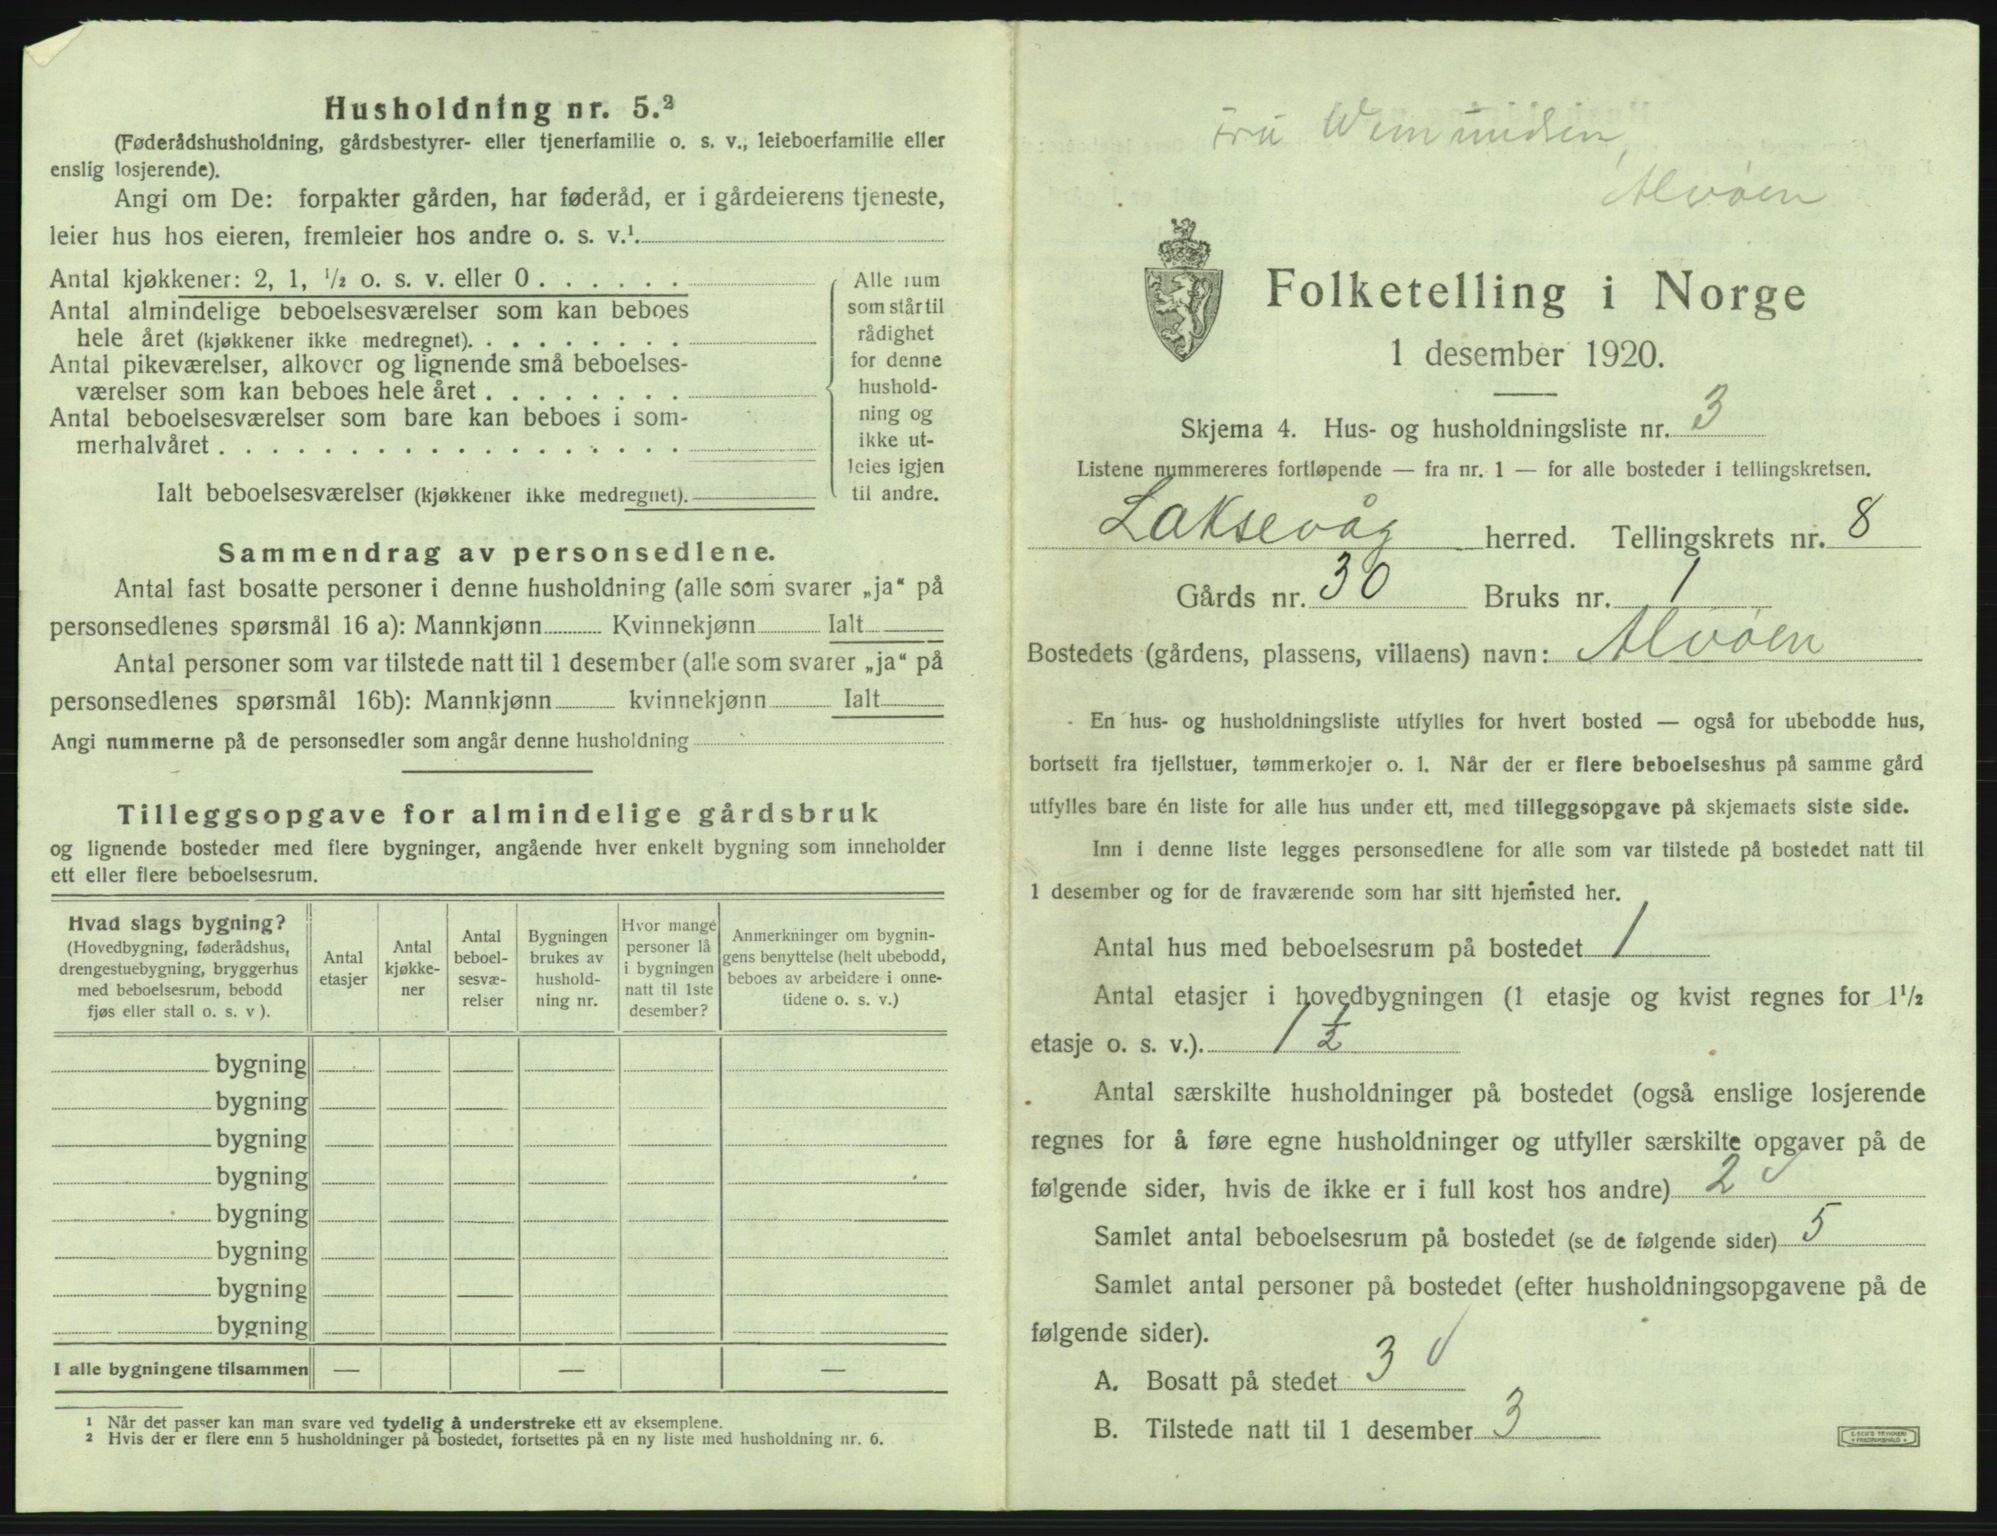 Husholdning nr. 5.²
(Føderådshusholdning, gårdsbestyrer- eller tjenerfamilie o. s. v., leieboerfamilie eller
enslig losjerende).
Angi om De: forpakter gården, har føderåd, er i gårdeierens tjeneste,
leier hus hos eieren, fremleier hos andre o. s. v.¹
Antal kjøkkener: 2, 1, ½ o. s. v. eller 0 . . . . . .
Antal almindelige beboelsesværelser som kan beboes
hele året (kjøkkener ikke medregnet). . . . . . . . .
Antal pikeværelser, alkover og lignende små beboelses-
værelser som kan beboes hele året . . . . . . . .
Antal beboelsesværelser som bare kan beboes i som-
merhalvåret . . . . . . . . . . . . . . . . . .
Ialt beboelsesværelser (kjøkkener ikke medregnet).
Alle rum
som står til
rådighet
for denne
hushold-
ning og
ikke ut-
leies igjen
til andre.
Sammendrag av personsedlene.
Antal fast bosatte personer i denne husholdning (alle som svarer „ja“ på
personsedlenes spørsmål 16 a): Mannkjønn Kvinnekjønn Ialt
Antal personer som var tilstede natt til 1 desember (alle som svarer „ja“ på
personsedlenes spørsmål 16b): Mannkjønn kvinnekjønn Ialt
Angi nummerne på de personsedler som angår denne husholdning
Tilleggsopgave for almindelige gårdsbruk
og lignende bosteder med flere bygninger, angående hver enkelt bygning som inneholder
ett eller flere beboelsesrum.
Hvad slags bygning?
(Hovedbygning, føderådshus,
drengestuebygning, bryggerhus
med beboelsesrum, bebodd
fjøs eller stall o. s. v ).
Antal
etasjer
Antal
kjøkke-
ner
Antal
beboel-
sesvæ-
relser
Bygningen
brukes av
hushold-
ning nr.
Hvor mange
personer lå
i bygningen
natt til 1ste
desember?
Anmerkninger om bygnin-
gens benyttelse (helt ubebodd,
beboes av arbeidere i onne-
tidene o. s. v.)
bygning
bygning
bygning
bygning
bygning
bygning
bygning
bygning
I alle bygningene tilsammen — — —
¹ Når det passer kan man svare ved tydelig å understreke ett av eksemplene.
² Hvis der er flere enn 5 husholdninger på bostedet, fortsettes på en ny liste med husholdning nr. 6.
Fru Wemundsen,
Alvøen
Folketelling i Norge
1 desember 1920.
Skjema 4. Hus- og husholdningsliste nr. 3
Listene nummereres fortløpende — fra nr. 1 — for alle bosteder i tellingskretsen.
Laksevåg herred. Tellingskrets nr. 8
Gårds nr. 30 Bruks nr. 1
Bostedets (gårdens, plassens, villaens) navn: Alvøen
En hus- og husholdningsliste utfylles for hvert bosted — også for ubebodde hus,
bortsett fra fjellstuer, tømmerkojer o. l. Når der er flere beboelseshus på samme gård
utfylles bare én liste for alle hus under ett, med tilleggsopgave på skjemaets siste side.
Inn i denne liste legges personsedlene for alle som var tilstede på bostedet natt til
1 desember og for de fraværende som har sitt hjemsted her.
Antal hus med beboelsesrum på bostedet 1
Antal etasjer i hovedbygningen (1 etasje og kvist regnes for 1½
etasje o. s. v.). 1 ½
Antal særskilte husholdninger på bostedet (også enslige losjerende
regnes for å føre egne husholdninger og utfyller særskilte opgaver på de
følgende sider, hvis de ikke er i full kost hos andre) 2
Samlet antal beboelsesrum på bostedet (se de følgende sider) 5
Samlet antal personer på bostedet (efter husholdningsopgavene på de
følgende sider).
A. Bosatt på stedet 3
B. Tilstede natt til 1 desember 3